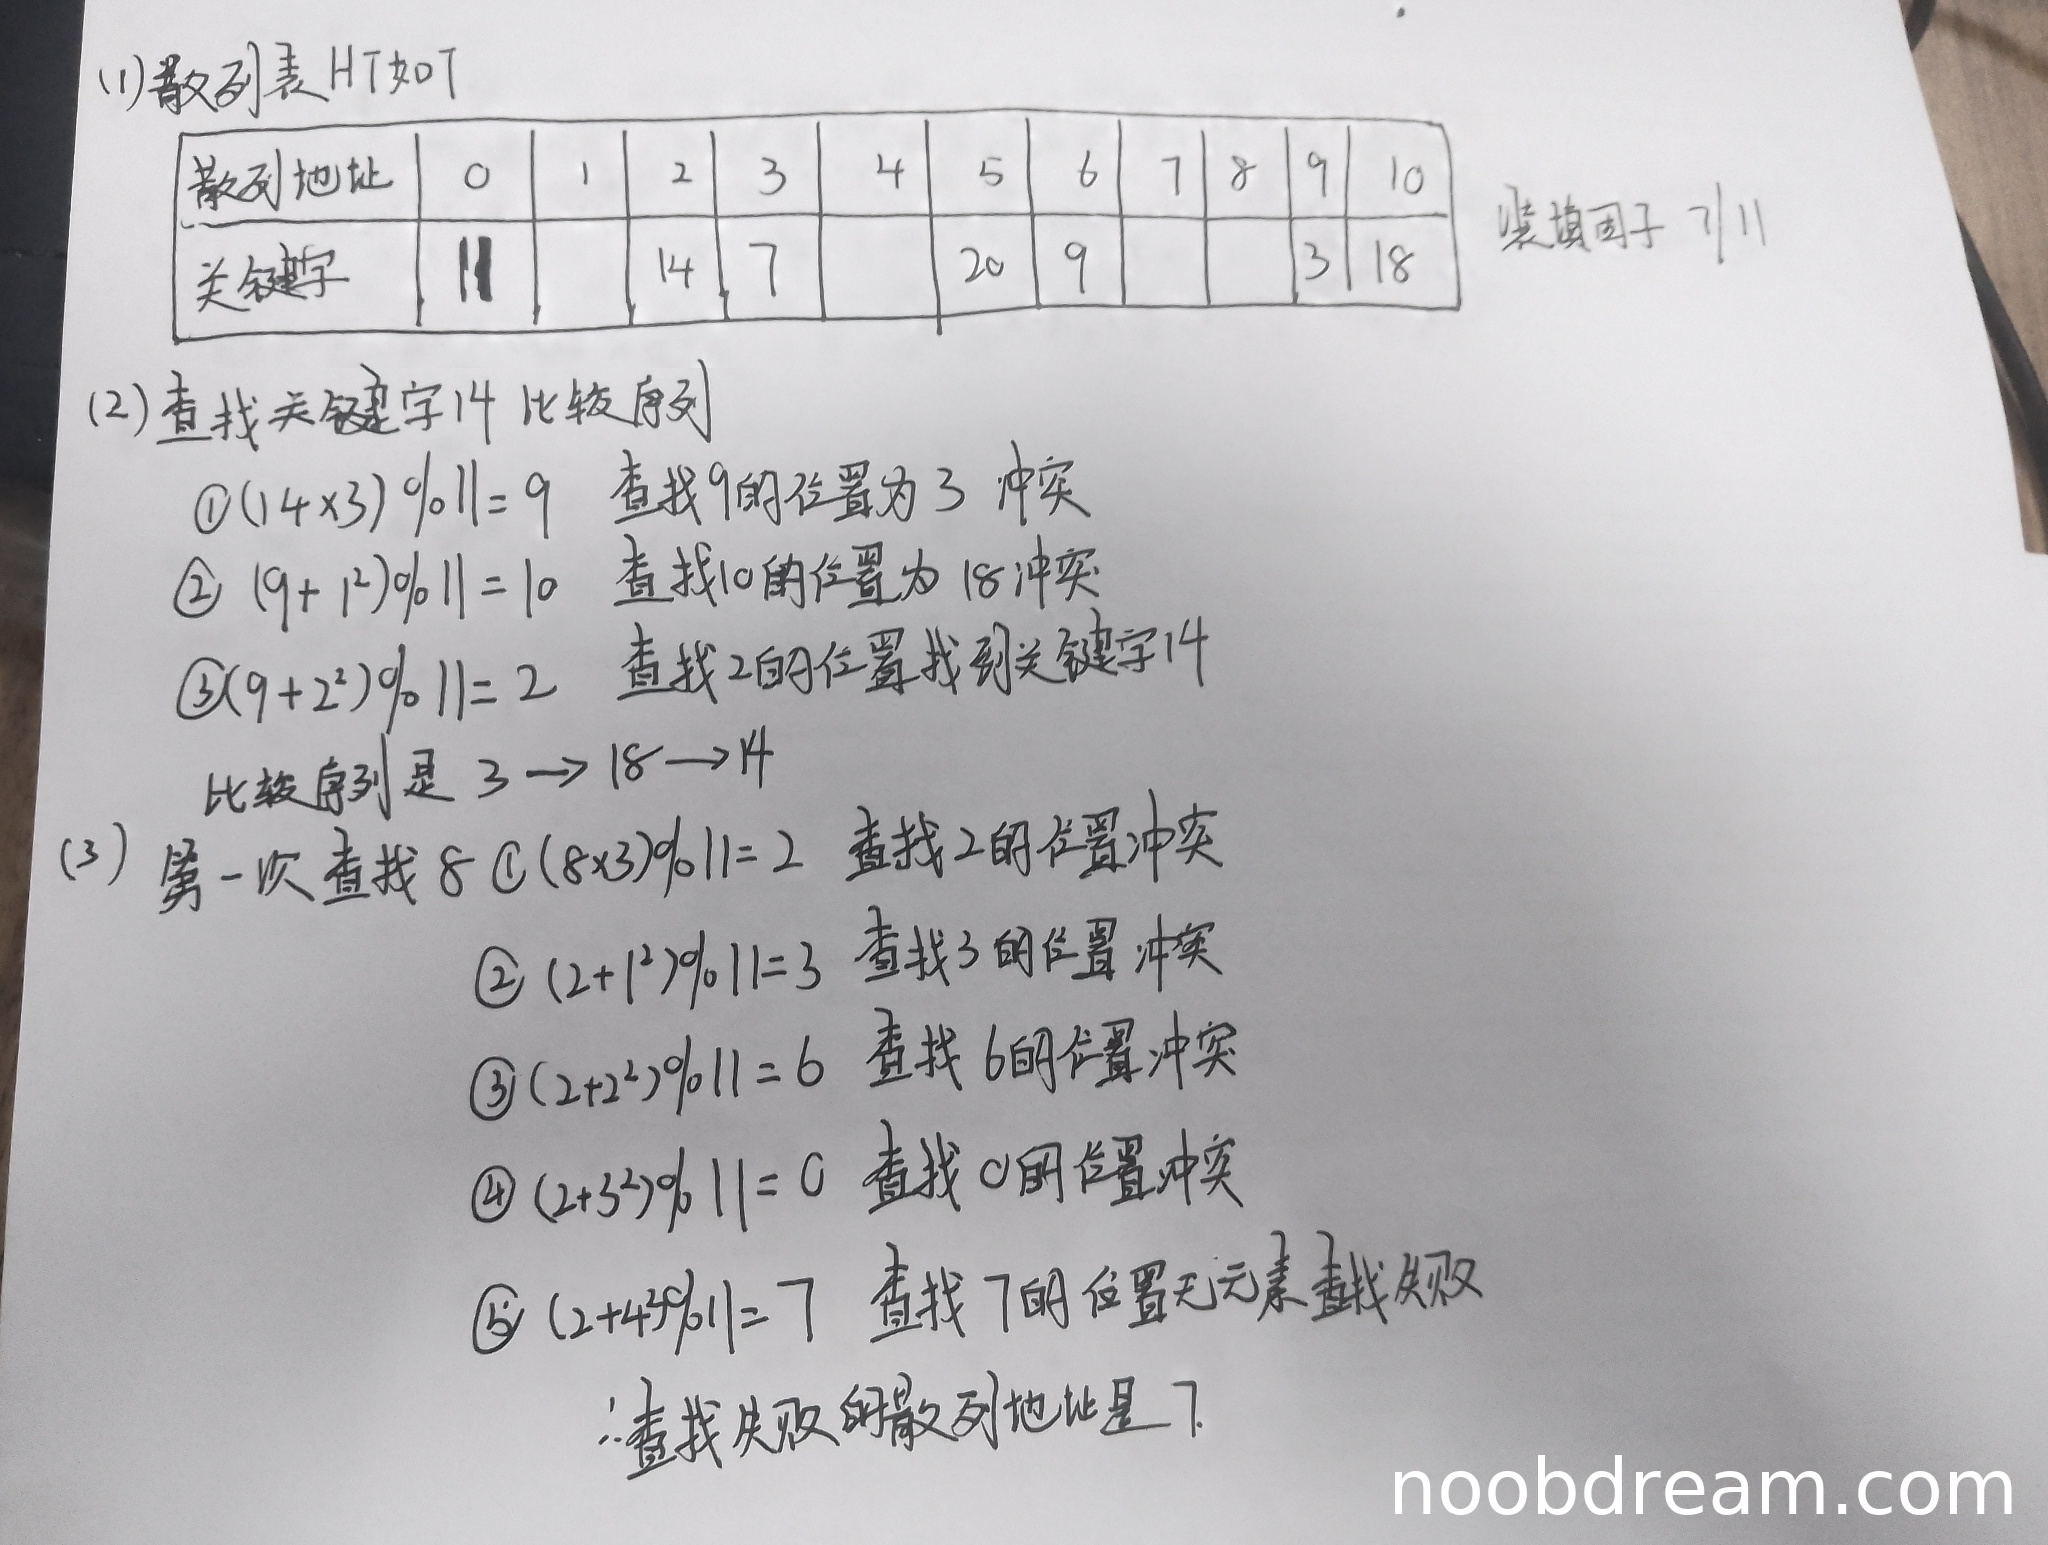 (1)散列表HT如下
散列地址 0 1 2 3 4 5 6 7 8 9 10
关键字 11 14 7 20 9 3 18
装填因子 7/11
(2)查找关键字14比较序列
①(14×3)%11=9 查找9的位置为3 冲突
② (9+1²)%11=10 查找10的位置为18冲突
③(9+2²)%11=2 查找2的位置找到关键字14
比较序列是 3→18→14
(3) 第一次查找8 ①(8×3)%11=2 查找2的位置冲突
② (2+1²)%11=3 查找3的位置冲突
③(2+2²)%11=6 查找6的位置冲突
④(2+3²)%11=0 查找0的位置冲突
⑤ (2+4²)%11=7 查找7的位置无元素查找失败
∴查找失败的散列地址是7.
noobdream.com